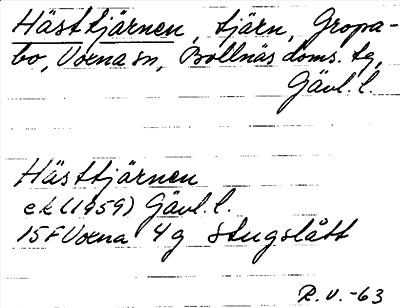 Hästtjärnen, tjärn, Gropa-
bo, Voxna sn, Bollnäs doms. tg,
Gävl. l.
Hästtjärnen
ek (1959) Gävl. l.
15F Voxna 4g Stugslått
R.V.-63